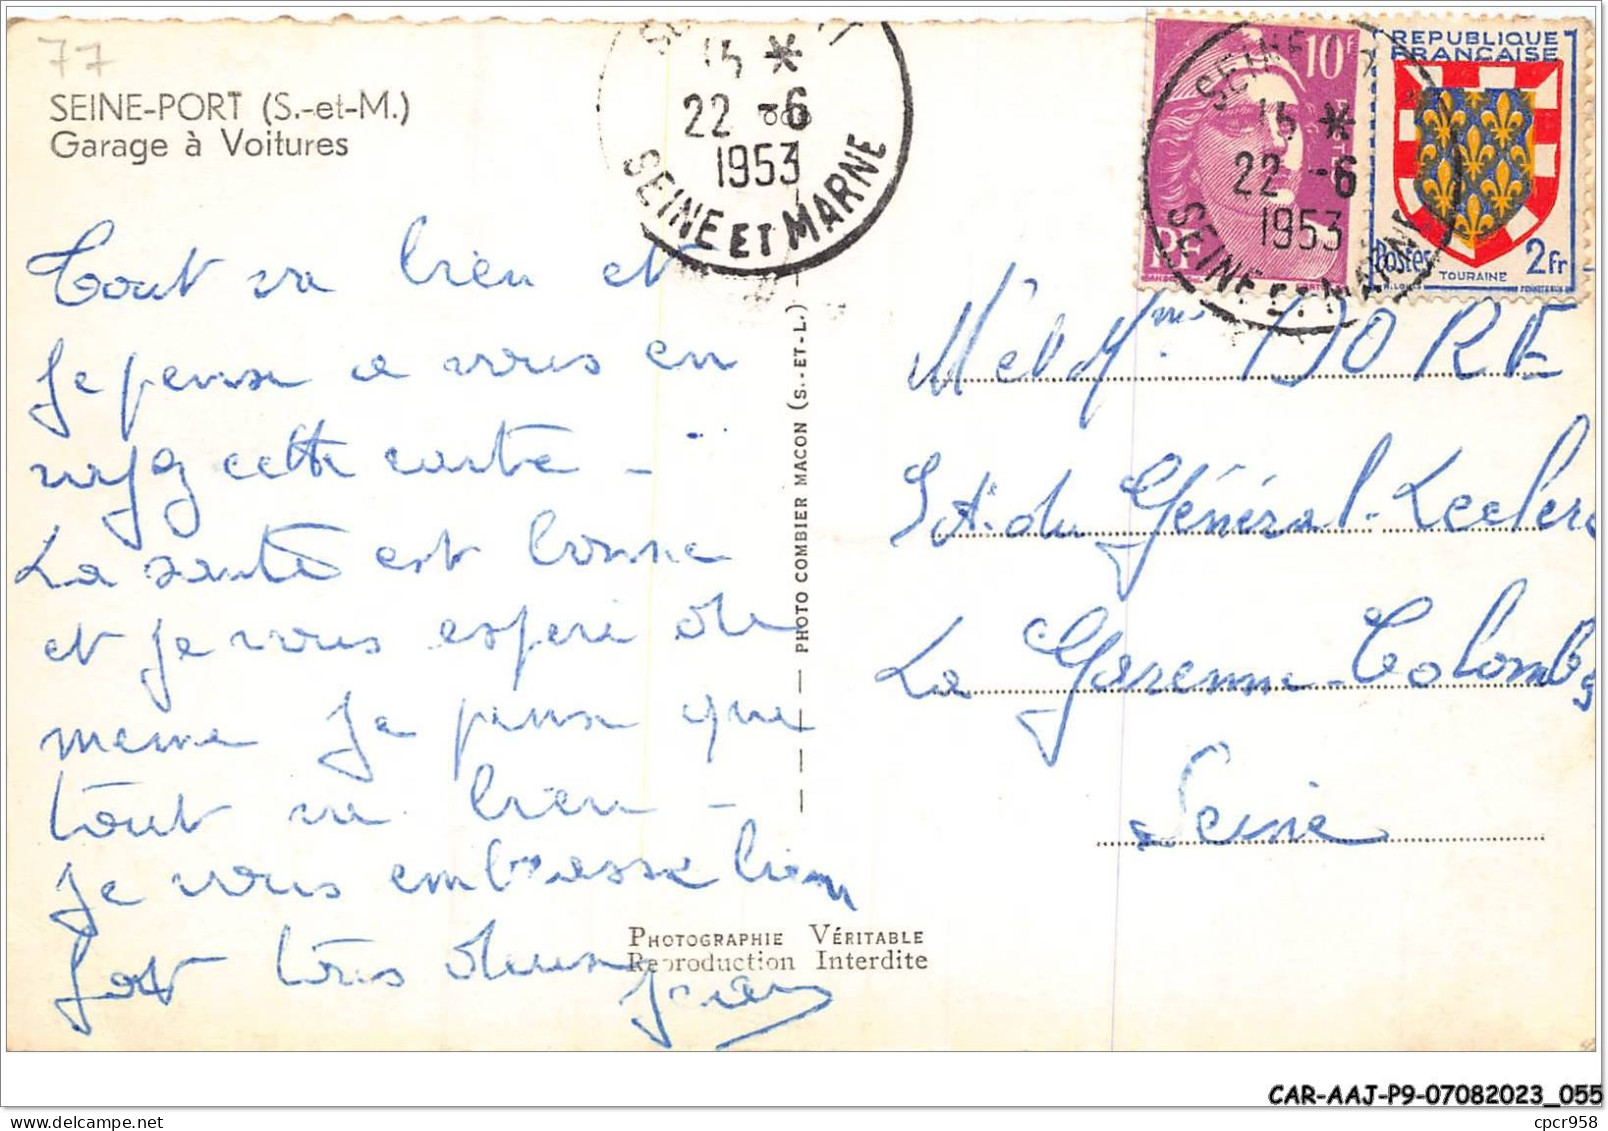 77
SEINE-PORT (S.-et-M.)
Garage à Voitures
15 *
22 -6
1953
SEINE ET MARNE
10F
RF
SEINE
15 *
22 -6
1953
SEINE ET MARNE
REPUBLIQUE
FRANÇAISE
Postes
2Fr
TOURAINE
Tout va bien et
Je pense a vous en
cette carte -
La santé est bonne
et je vous espere de
meme Je pense que
tout va bien -
Je vous embrasse bien
fort tous deux
Jean
PHOTO COMBIER MACON (S.-ET-L.)
PHOTOGRAPHIE VÉRITABLE
Reproduction Interdite
M et Mme DORE
du Général-Leclerc
La Garenne-Colombes
Seine
CAR-AAJ-P9-07082023_055
delcampe.net
cpcr958